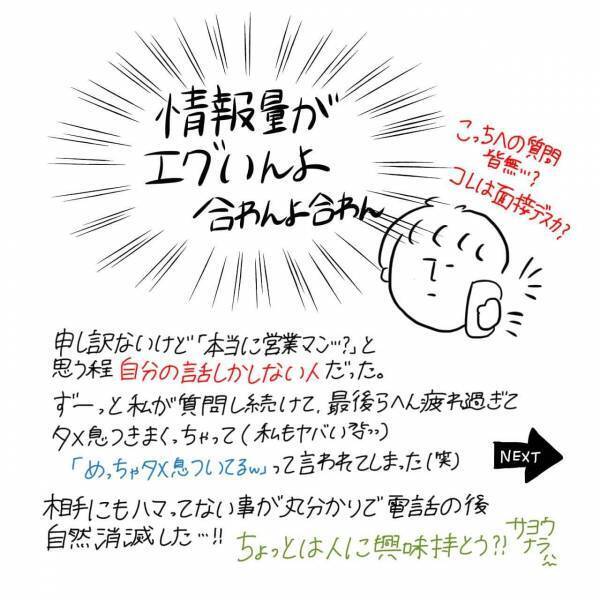 情報量が
エグいんよ
合わんよ合わん
こっちへの質問
皆無…?
コレは面接デスカ?
申し訳ないけど「本当に営業マン…?」と
思う程 自分の話しかしない人だった。
ずーっと私が質問し続けて、最後らへん疲れ過ぎて
タメ息つきまくっちゃって(私もヤバい
「めっちゃタメ息ついてるw」って言われてしまった(笑)
NEXT
相手にもハマってない事が丸分かりで電話の後
自然消滅した…!!
ちょっとは人に興味持とう?!
サヨウ
ナラ